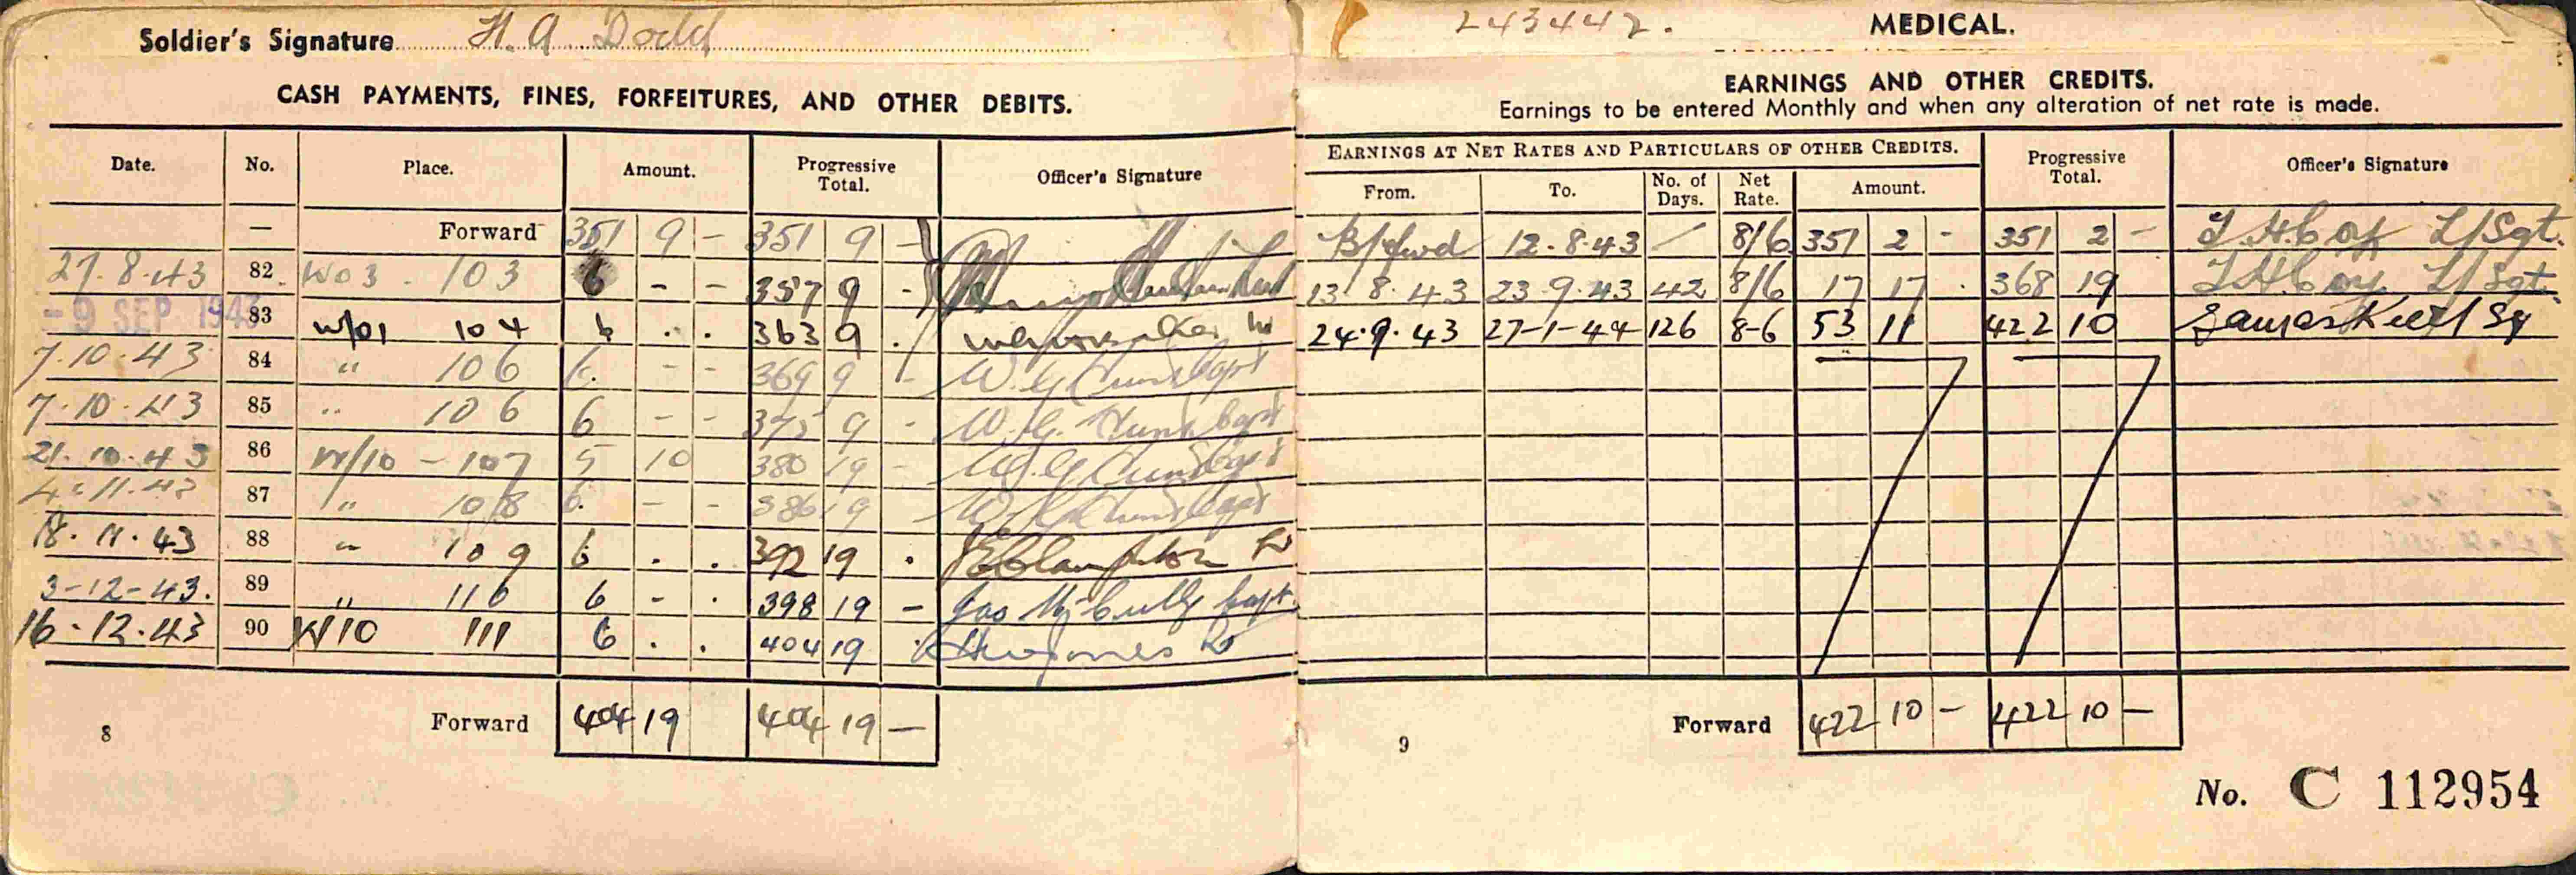 Soldier's Signature H. A. Dodd
CASH PAYMENTS, FINES, FORFEITURES, AND OTHER DEBITS.
Date. No. Place. Amount. Progressive Total. Officer's Signature
— Forward 351 9 - 351 9 -
27.8.43 82 W03. 103 6 - - 357 9 -
- 9 SEP 1943 83 W/01 104 6 . . 363 9 .
7.10.43 84 " 106 6. - - 369 9 -
7.10.43 85 " 106 6 - - 375 9 - Capt
21.10.43 86 W/10 - 107 5 10 380 19 - Capt
4.11.43 87 " 108 6. - - 386 19 - Capt
18.11.43 88 " 109 6 . . 392 19 .
3-12-43. 89 " 110 6 - . 398 19 - Jas Capt.
16.12.43 90 W10 111 6 . . 404 19 . Jones Lt
Forward 404 19 404 19 —
8
243442. MEDICAL.
EARNINGS AND OTHER CREDITS.
Earnings to be entered Monthly and when any alteration of net rate is made.
EARNINGS AT NET RATES AND PARTICULARS OF OTHER CREDITS. Progressive Total. Officer's Signature
From. To. No. of Days. Net Rate. Amount.
B/fwd 12.8.43 / 8/6 351 2 - 351 2 - L/Sgt.
13.8.43 23.9.43 42 8/6 17 17 . 368 19 L/Sgt.
24.9.43 27-1-44 126 8-6 53 11 422 10
Forward 422 10 - 422 10 —
9
No. C 112954